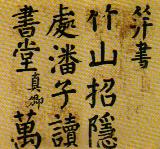 并書
竹山招隱
處潘子讀
書堂真卿萬